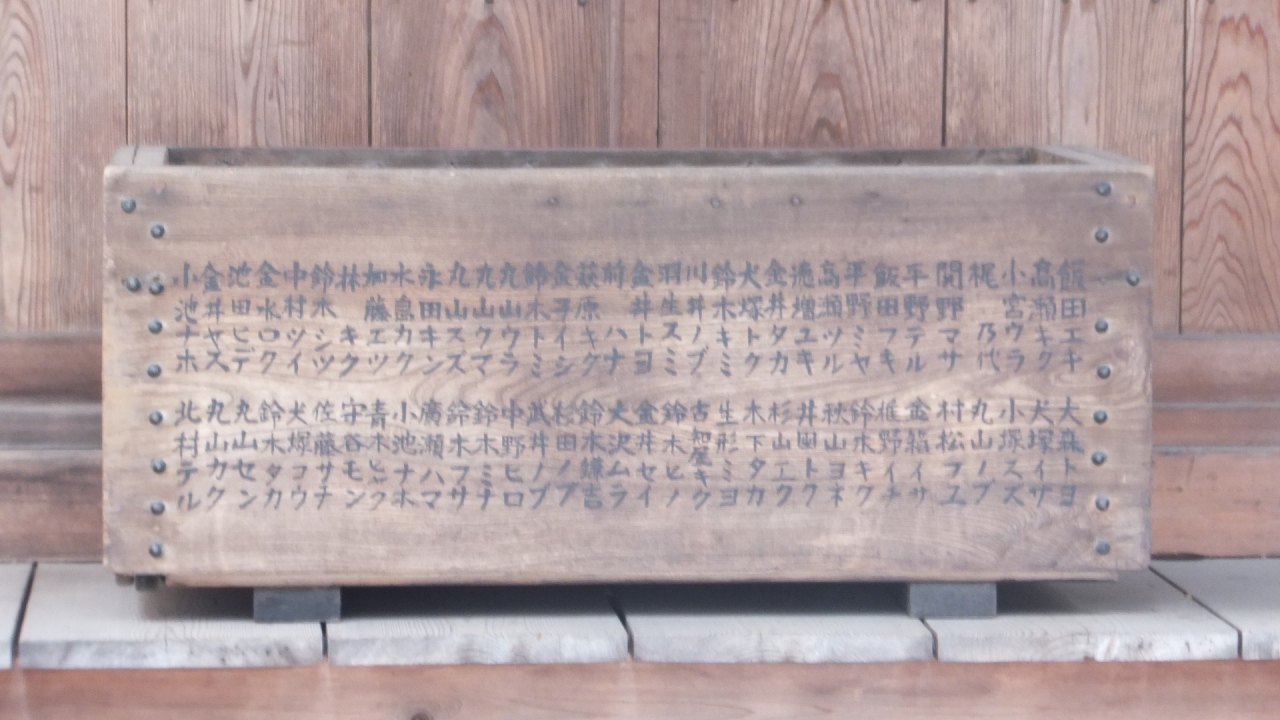 飯田エキ
高瀬キク
小宮ウラ
梶乃代
関野マサ
平野テル
飯田フキ
平野ミヤ
高瀬ツル
池増ユキ
金井タカ
犬塚トク
鈴木キミ
川井ノブ
羽生スミ
金井トヨ
前ハナ
萩原キク
金子イシ
鈴木トミ
丸山ウラ
丸山クマ
丸山スズ
永田キン
水島カク
加藤エツ
林キク
鈴木シツ
中村ツイ
金水ロク
池田ヒデ
金井ヤス
小池ナホ
大森トヨ
犬塚イサ
小塚スズ
丸山ノブ
村松フユ
金箱イサ
椎野イチ
鈴木キク
秋山ヨネ
井田トク
杉山エク
木下タカ
生形ミヨ
古知屋キク
鈴木ヒノ
金井セイ
犬沢ムラ
鈴木鎌吉
杉田ノブ
武井ノブ
中野ヒロ
鈴木ミナ
鈴木フサ
廣瀬ハマ
小池ナホ
青木ヒク
守谷モン
佐藤サチ
犬塚コウ
鈴木タカ
丸山セン
丸山カク
北村テル